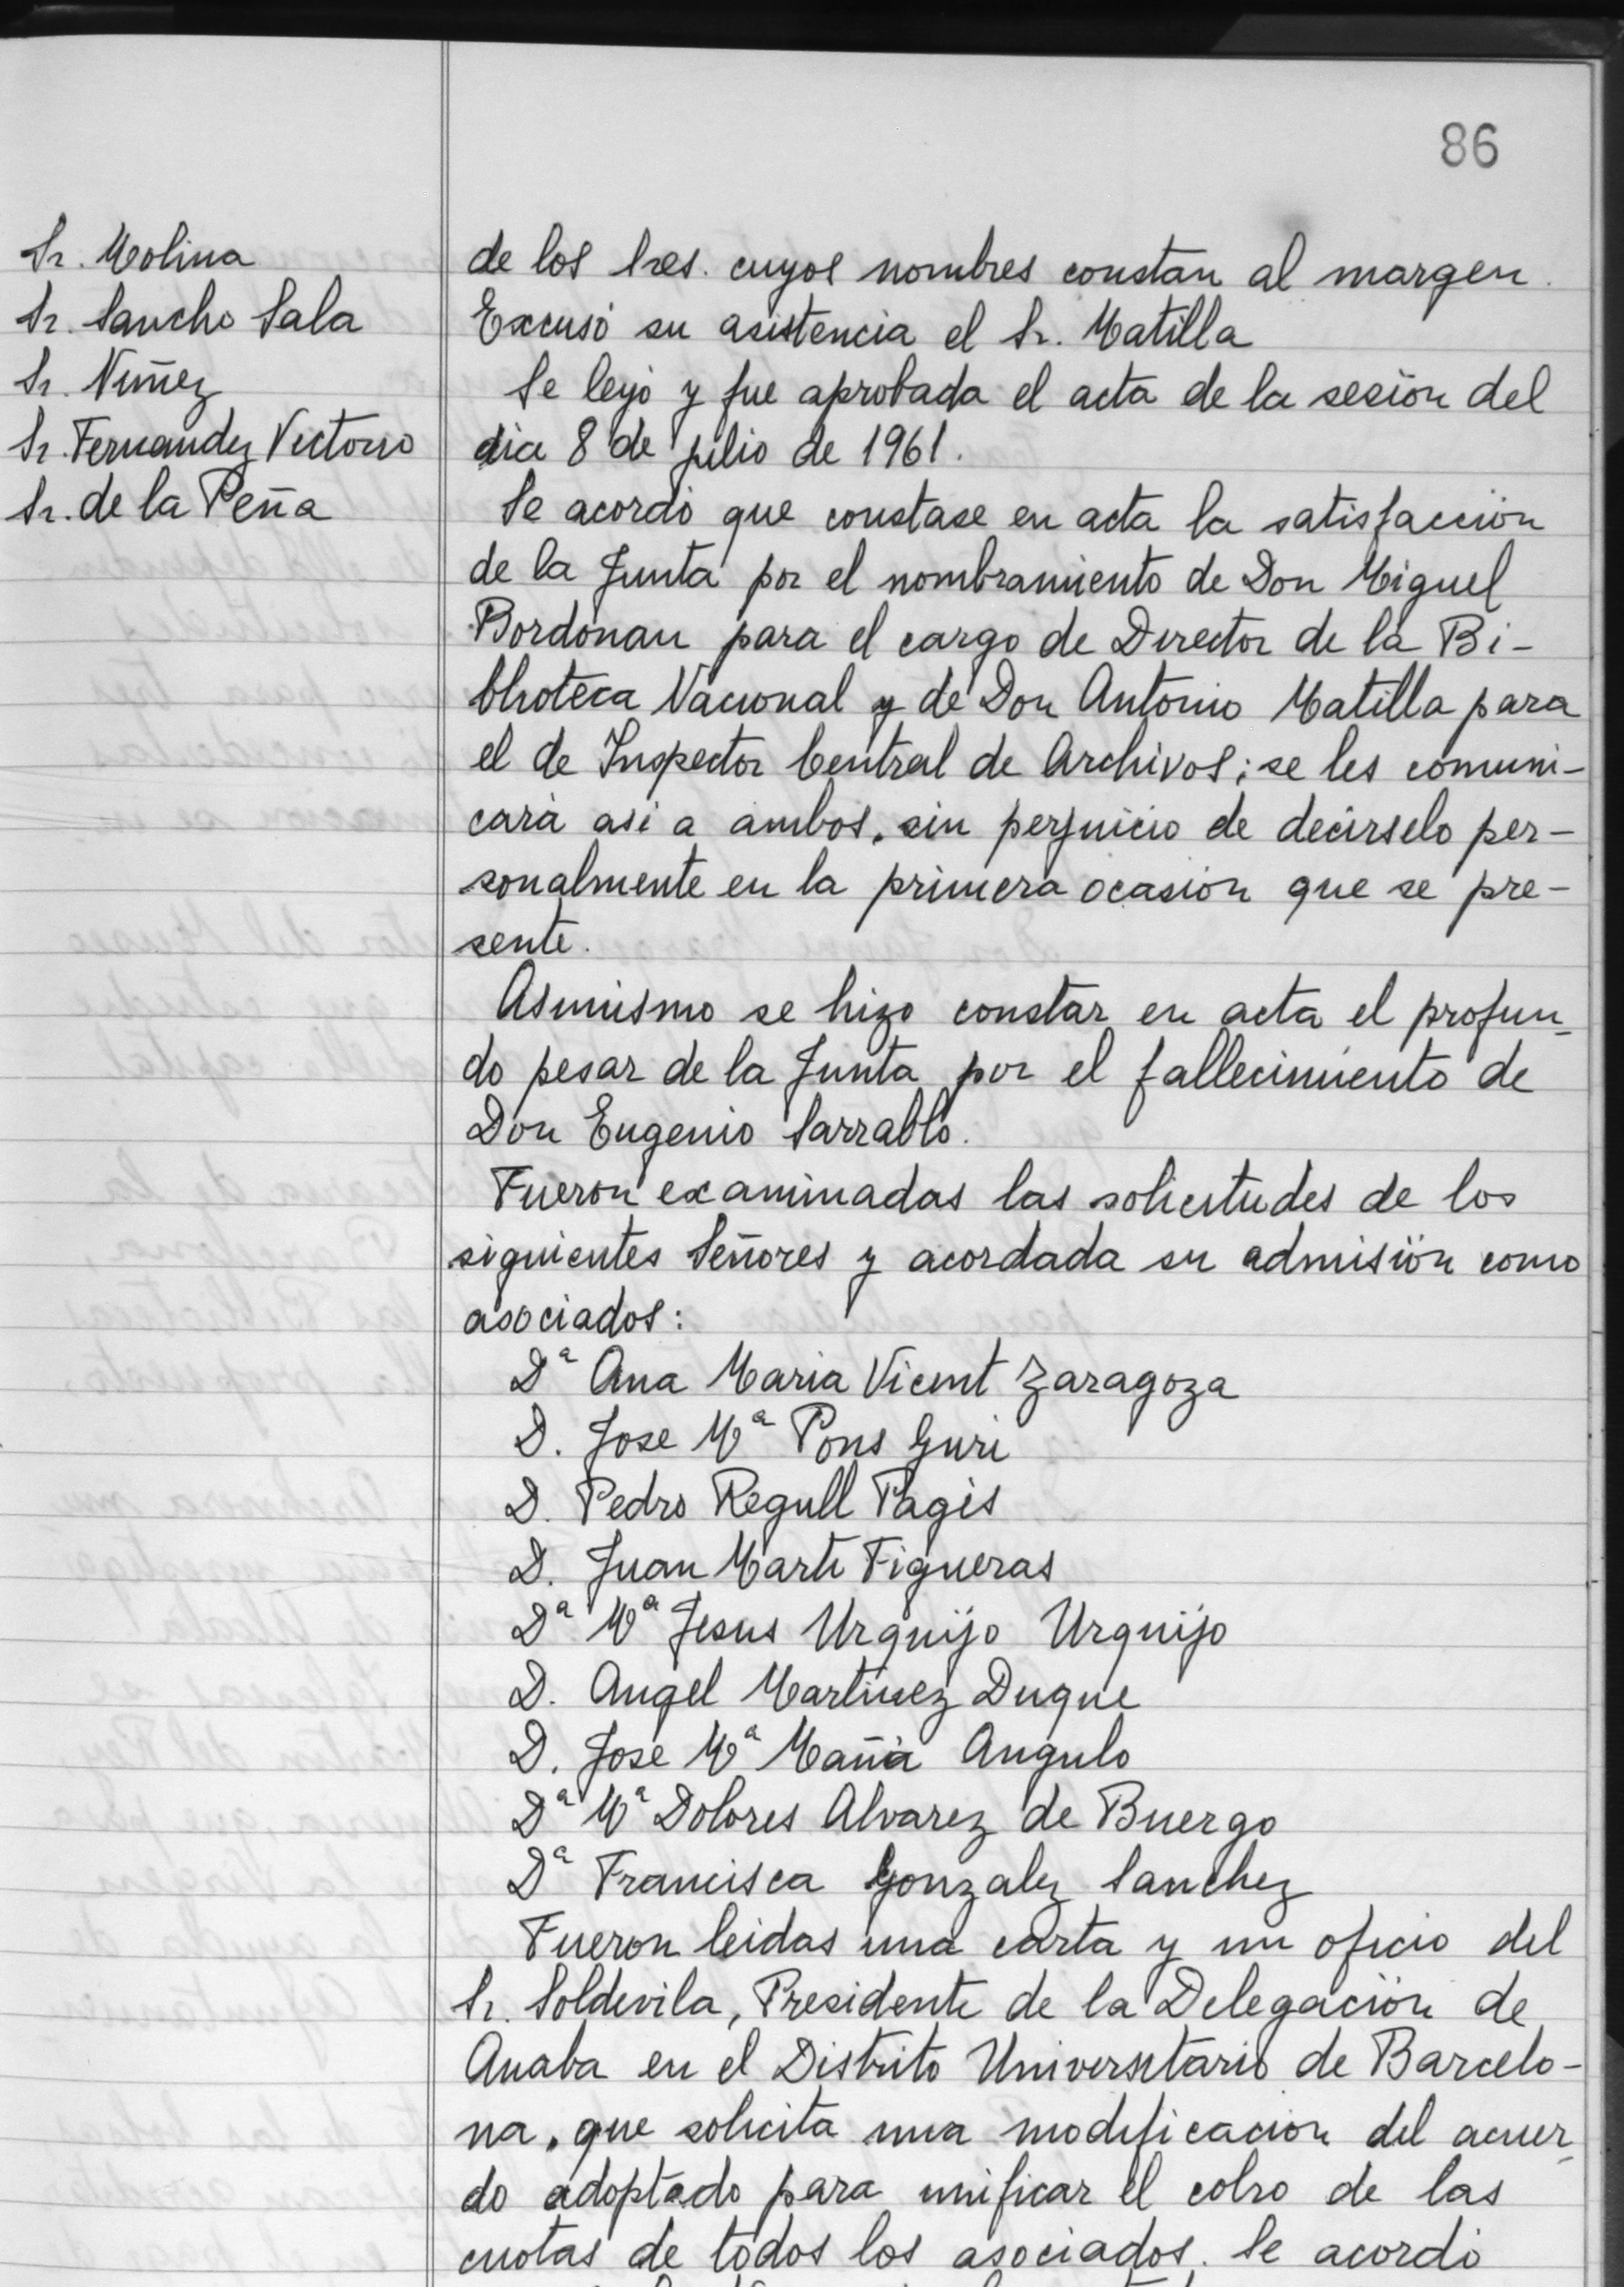 86
Sr. Molina
Sr. Sancho Sala
Sr. Nuñez
Sr. Fernandez Victorio
Sr. de la Peña
de los Sres. cuyos nombres constan al margen.
Excusó su asistencia el Sr. Matilla
Se leyó y fue aprobada el acta de la sesión del
dia 8 de julio de 1961.
Se acordó que constase en acta la satisfacción
de la Junta por el nombramiento de Don Miguel
Bordonau para el cargo de Director de la Bi-
blioteca Nacional y de Don Antonio Matilla para
el de Inspector Central de Archivos; se les comuni-
cará asi a ambos, sin perjuicio de decirselo per-
sonalmente en la primera ocasión que se pre-
sente.
Asimismo se hizo constar en acta el profun-
do pesar de la Junta por el fallecimiento de
Don Eugenio Sarrablo.
Fueron examinadas las solicitudes de los
siguientes Señores y acordada su admisión como
asociados:
Dª Ana Maria Vicent Zaragoza
D. Jose Mª Pons Guri
D. Pedro Regull Pagés
D. Juan Marti Figueras
Dª Mª Jesus Urquijo Urquijo
D. Angel Martinez Duque
D. Jose Mª Mañá Angulo
Dª Mª Dolores Alvarez de Buergo
Dª Francisca Gonzalez Sanchez
Fueron leidas una carta y un oficio del
Sr. Soldevila, Presidente de la Delegación de
Anaba en el Distrito Universitario de Barcelo-
na, que solicita una modificación del acuer-
do adoptado para unificar el cobro de las
cuotas de todos los asociados. Se acordó